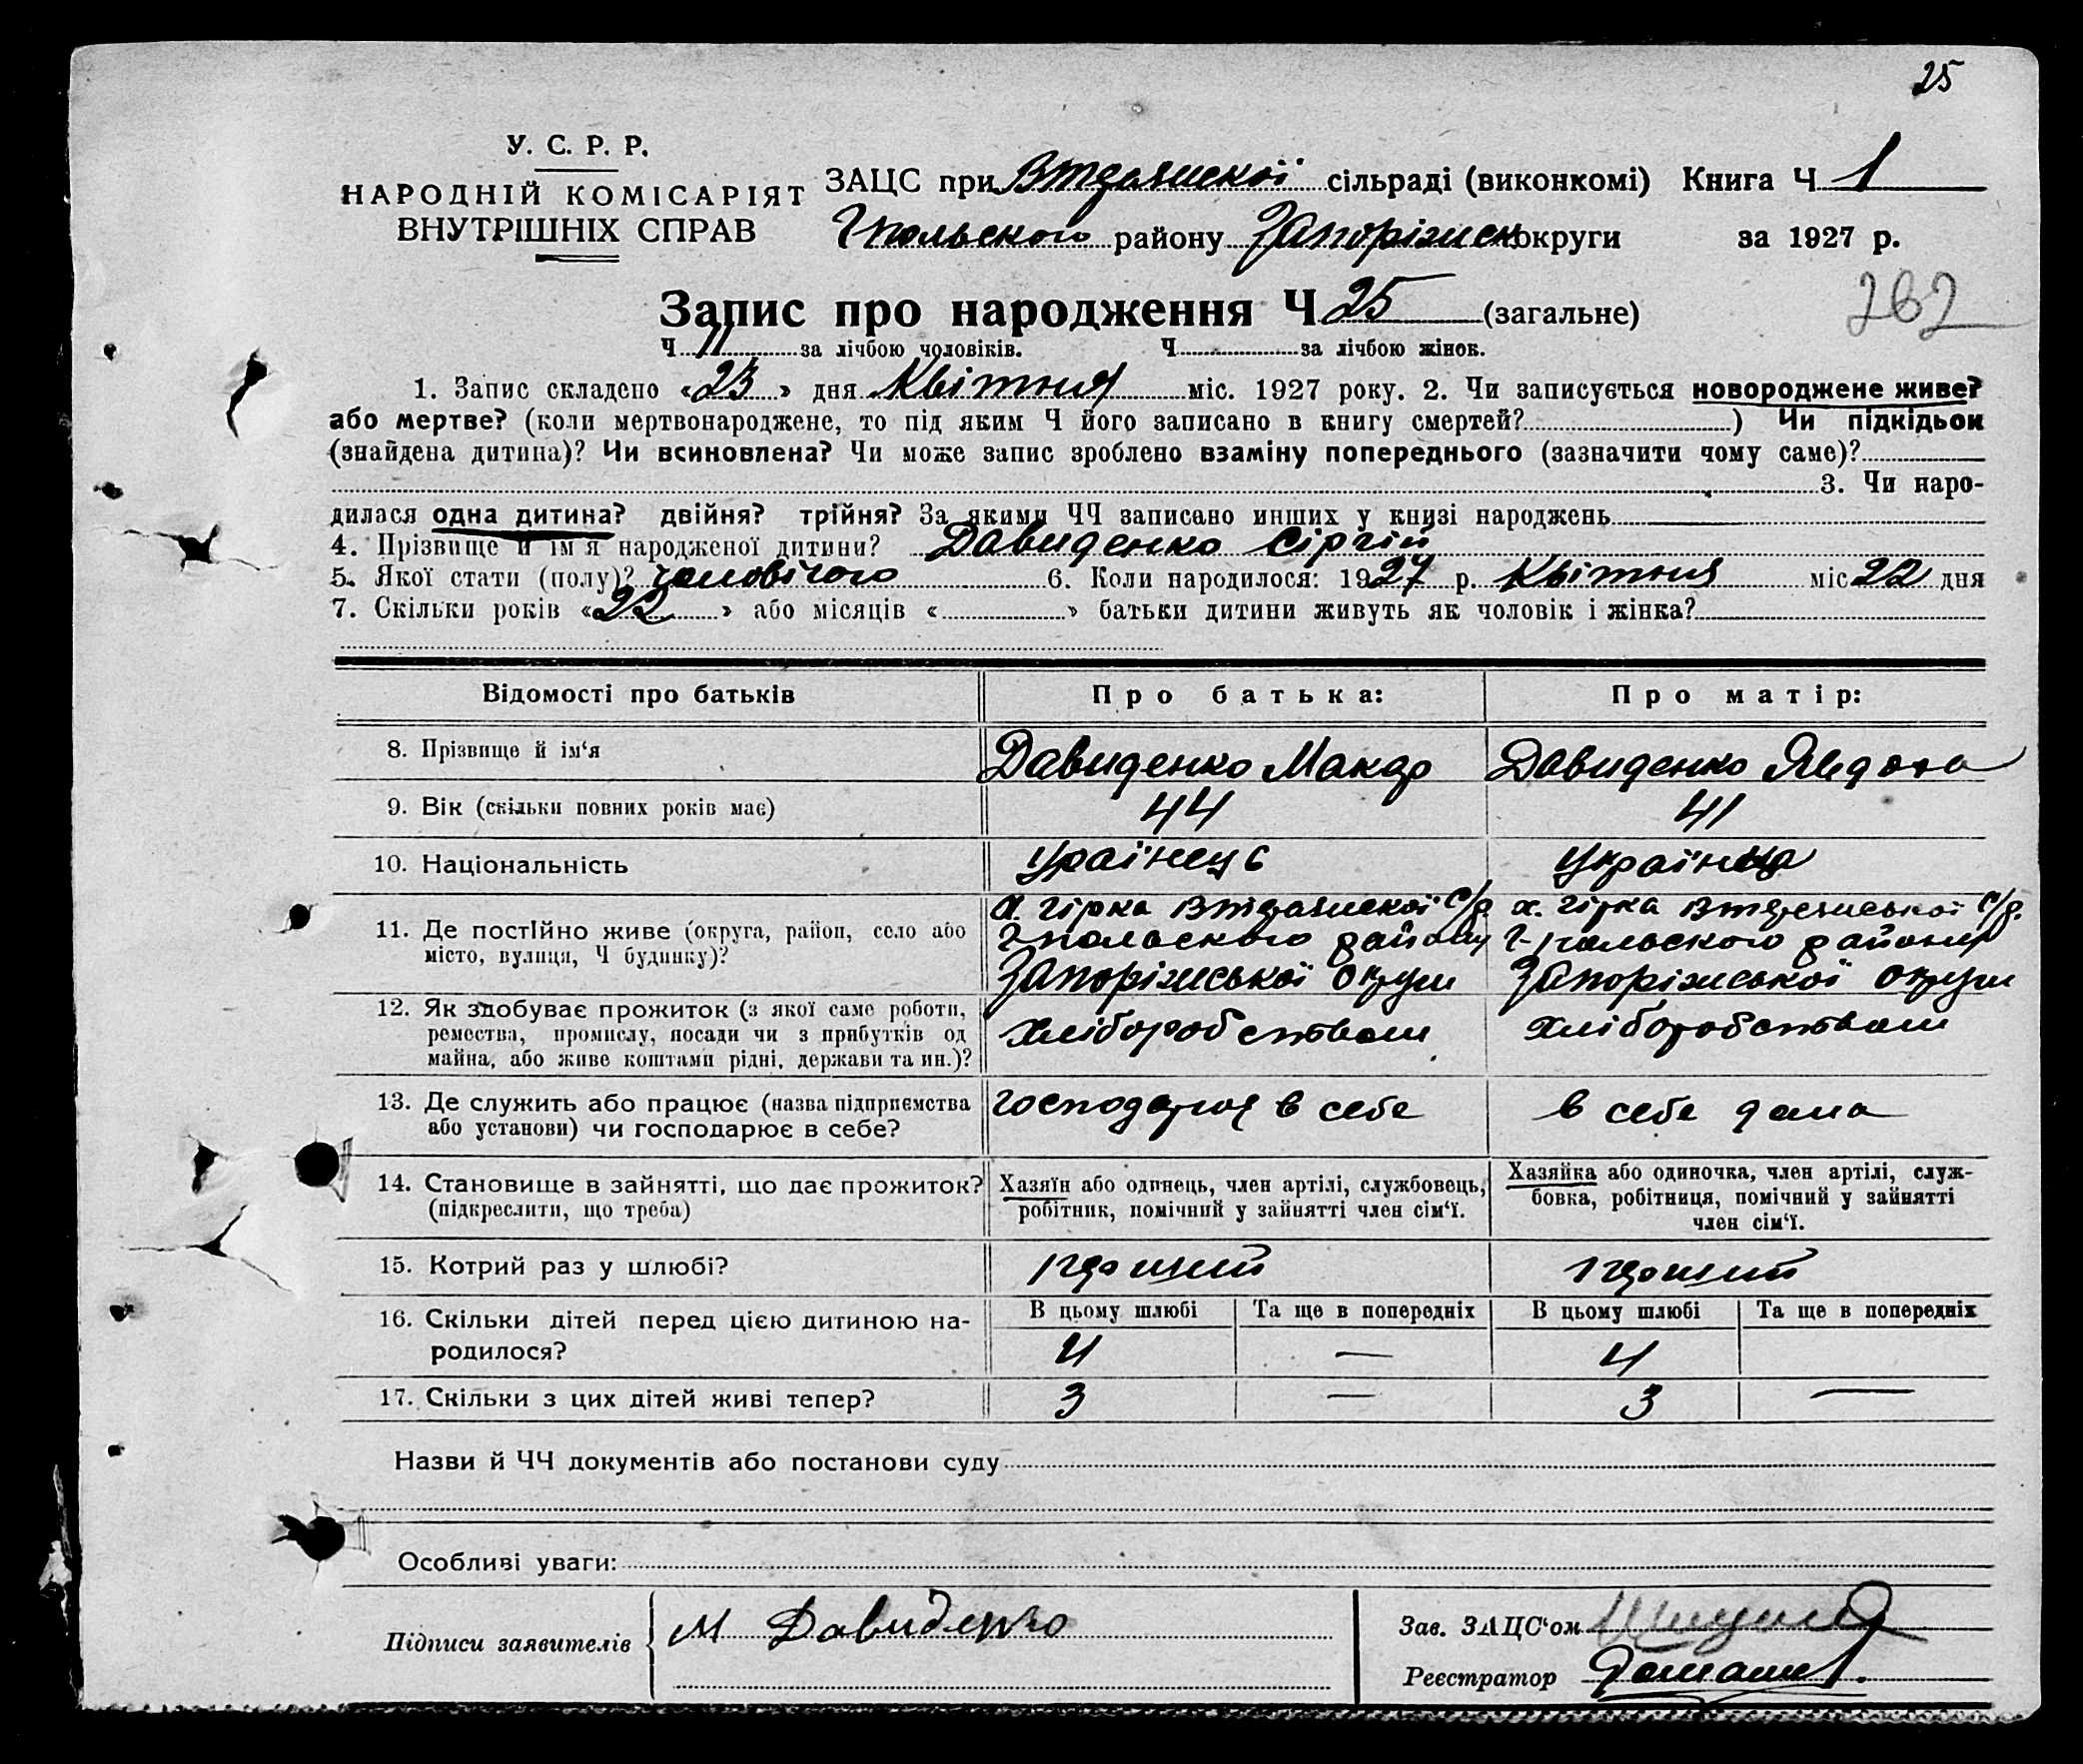 25
У. С. Р. Р.
НАРОДНІЙ КОМІСАРІЯТ
ВНУТРІШНІХ СПРАВ
ЗАЦС при сільраді (виконкомі) Книга Ч 1
Гпольского району Запоріжск округи за 1927 р.
262
Запис про народження Ч 25 (загальне)
Ч 11 за лічбою чоловіків. Ч за лічбою жінок.
1. Запис складено «23» дня Квітня міс. 1927 року. 2. Чи записується новороджене живе?
або мертве? (коли мертвонароджене, то під яким Ч його записано в книгу смертей? ) Чи підкідьок
(знайдена дитина)? Чи всиновлена? Чи може запис зроблено взаміну попереднього (зазначити чому саме)?
3. Чи наро-
дилася одна дитина? двійня? трійня? За якими ЧЧ записано инших у книзі народжень
4. Прізвище й ім'я народженої дитини? Давиденко Сіргій
5. Якої стати (полу)? чоловічого 6. Коли народилося: 1927 р. Квітня міс 22 дня
7. Скільки років «22» або місяців « » батьки дитини живуть як чоловік і жінка?
Відомості про батьків Про батька: Про матір:
8. Прізвище й ім'я Давиденко Макар Давиденко Явдоха
9. Вік (скільки повних років має) 44 41
10. Національність Українець Українка
11. Де постійно живе (округа, район, село або
місто, вулиця, Ч будинку)?
х. гірка с/р. х. гірка с/р.
Гпольского району Г-польского району
Запоріжської округи Запоріжської округи
12. Як здобуває прожиток (з якої саме роботи,
ремества, промислу, посади чи з прибутків од
майна, або живе коштами рідні, держави та ин.)?
Хліборобством Хліборобством
13. Де служить або працює (назва підприємства
або установи) чи господарює в себе?
господарює в себе в себе дома
14. Становище в зайнятті, що дає прожиток?
(підкреслити, що треба)
Хазяїн або одинець, член артілі, службовець,
робітник, помічний у зайнятті член сім'ї.
Хазяйка або одиночка, член артілі, служ-
бовка, робітниця, помічний у зайнятті
член сім'ї.
15. Котрий раз у шлюбі?
16. Скільки дітей перед цією дитиною на-
родилося?
В цьому шлюбі Та ще в попередніх В цьому шлюбі Та ще в попередніх
4 — 4
17. Скільки з цих дітей живі тепер? 3 — 3 —
Назви й ЧЧ документів або постанови суду
Особливі уваги:
Підписи заявителів М Давиденко
Зав. ЗАЦС'ом
Реєстратор